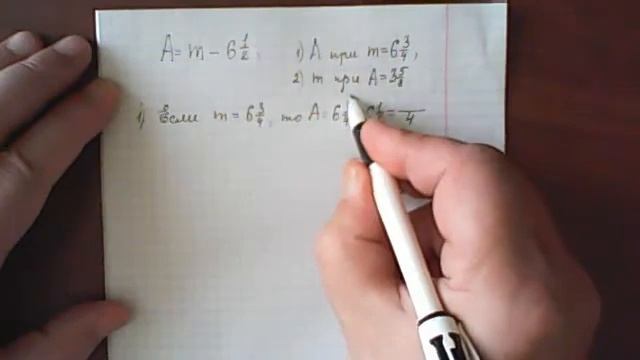 A = m − 6 1/2; 1) A при m = 6 3/4,
2) m при A = 3 5/8
1) Если m = 6 3/4, то A = 6 = /4